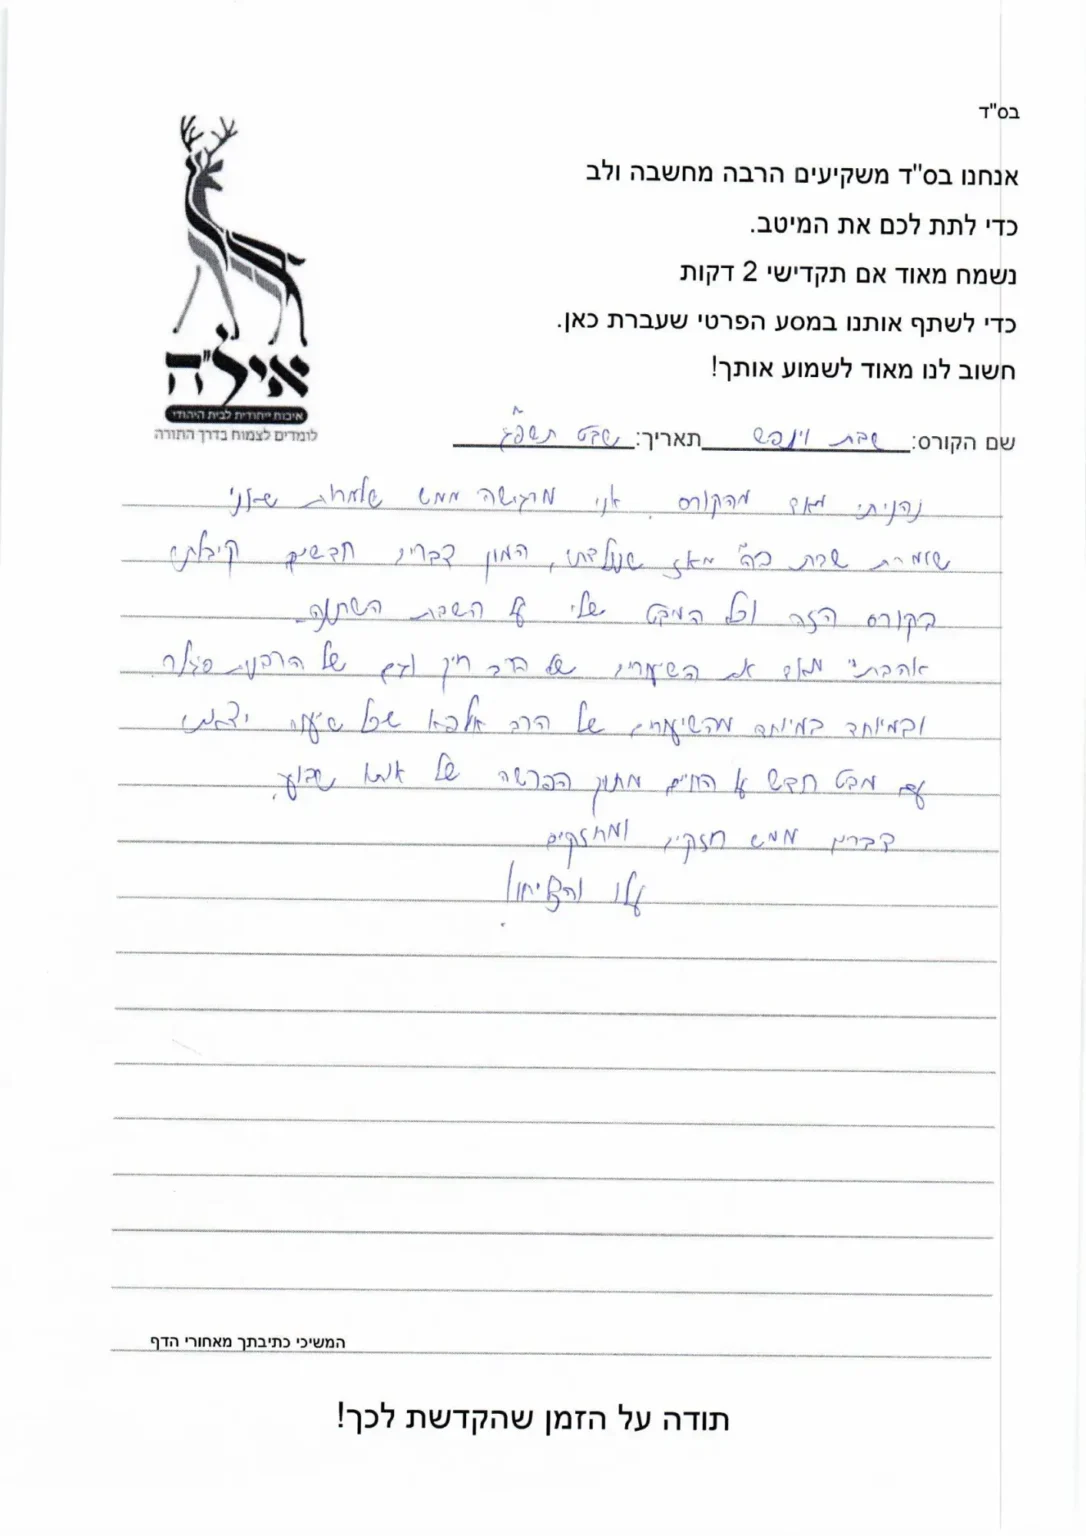 בס"ד
אנחנו בס"ד משקיעים הרבה מחשבה ולב
כדי לתת לכם את המיטב.
נשמח מאוד אם תקדישי 2 דקות
כדי לשתף אותנו במסע הפרטי שעברת כאן.
חשוב לנו מאוד לשמוע אותך!
איל"ה
איכות ייחודית לבית היהודי
לומדים לצמוח בדרך התורה
שם הקורס: שבת וינפש תאריך: שבט תשפ"ג
נהניתי מאד מהקורס. אני מרגישה ממש שלמרות שאני
שומרת שבת ב"ה מאז שנולדתי, המון דברים חדשים קיבלתי
בקורס הזה וכל המבט שלי על השבת השתנה.
אהבתי מאד את השיעורים של הרב חיון וגם של הרבנית
ובמיוחד במיוחד מהשיעורים של הרב אלבא שכל שיעור יצאתי
עם מבט חדש על החיים מתוך הפרשה של אותו שבוע.
דברים ממש חזקים ומחזקים
עלו והצליחו!
המשיכי כתיבתך מאחורי הדף
תודה על הזמן שהקדשת לכך!